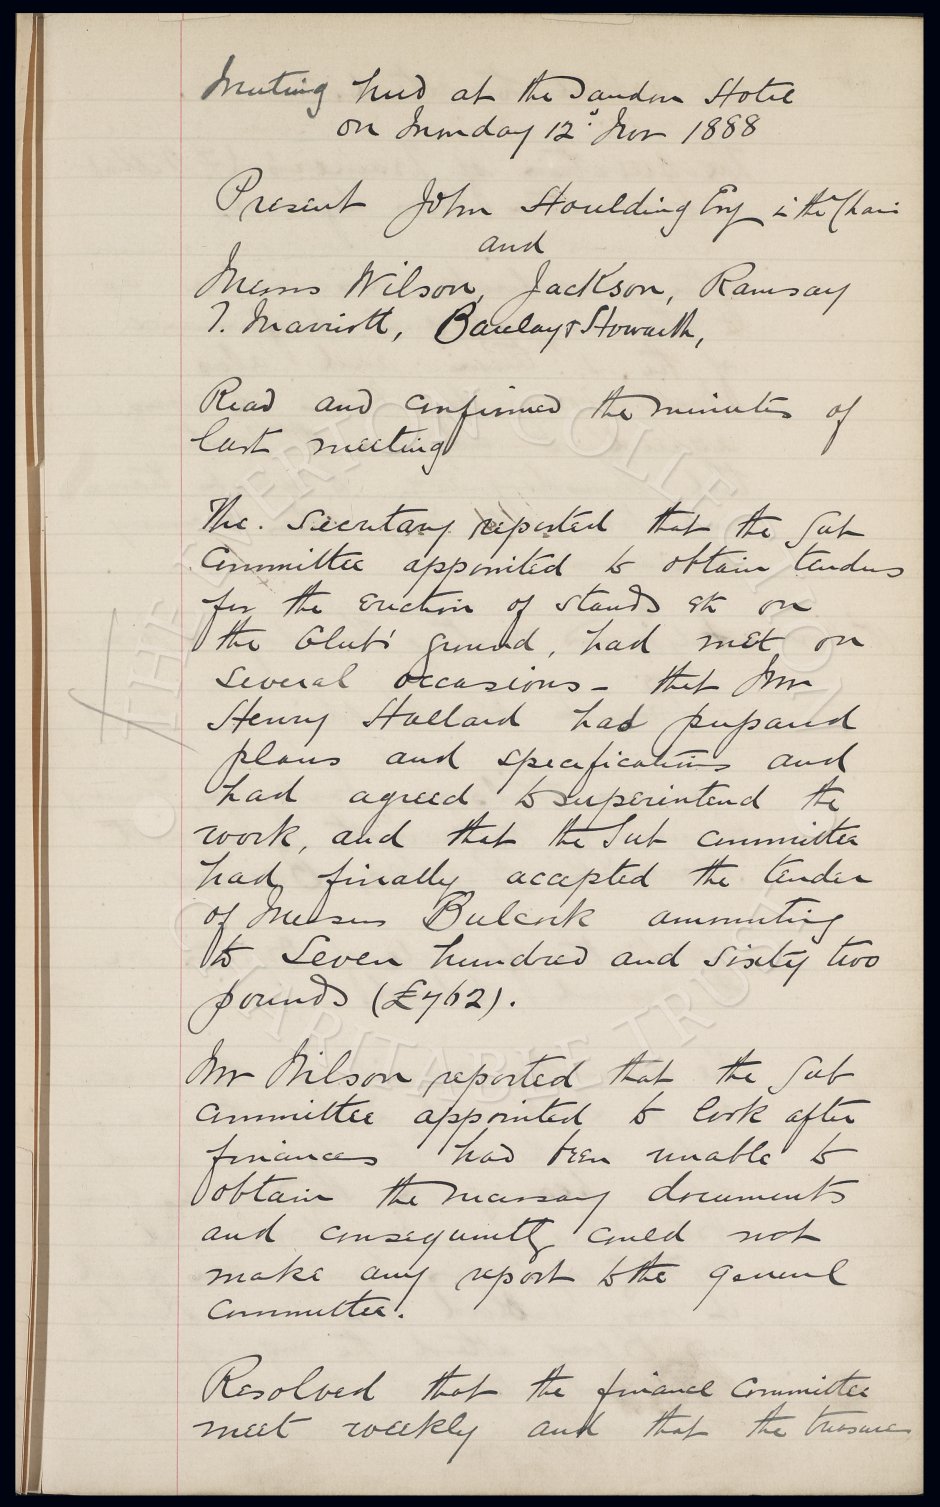 Meeting held at the Sandon Hotel
on Monday 12th Nov 1888
Present John Houlding Esq in the Chair
and
Messrs Wilson, Jackson, Ramsay
T. Marriott, Barclay & Howarth,
Read and confirmed the minutes of
last meeting
The. Secretary reported that the Sub
Committee appointed to obtain tenders
for the erection of stands etc on
the Club's ground, had met on
several occasions - that Mr
Henry Hallard had prepared
plans and specifications and
had agreed to superintend the
work, and that the Sub committee
had finally accepted the tender
of Messrs Bulcock amounting
to Seven hundred and sixty two
pounds (£762).
Mr Wilson reported that the Sub
Committee appointed to look after
finances had been unable to
obtain the necessary documents
and consequently could not
make any report to the general
Committee.
Resolved that the finance Committee
meet weekly and that the treasurer
THE EVERTON COLLECTION
CHARITABLE TRUST